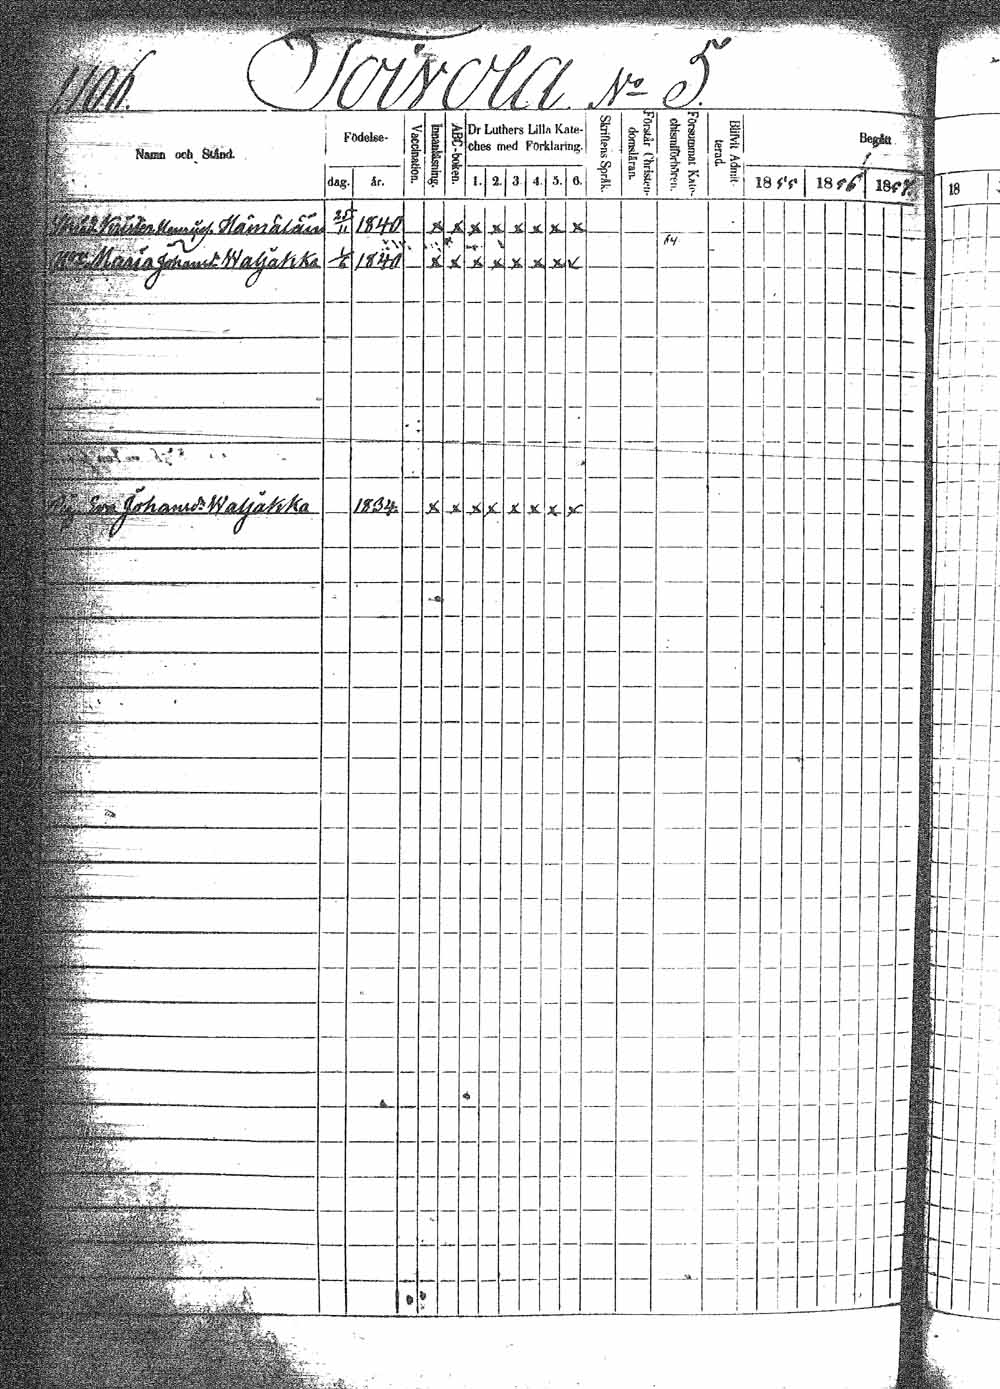 1106. Toivola No 5.
Namn och Stånd.
Födelse-
dag. år.
Vaccination.
Innanläsning.
ABC-boken.
Dr Luthers Lilla Kate-
ches med Förklaring.
1. 2. 3. 4. 5. 6.
Skriftens Språk.
Förstår Christen-
domsläran.
Försummat Kate-
chismiförhören.
Blifvit Admit-
terad.
Begått
1855 1856 1857 18
Hämäläin 25/11 1840 x x x x x x x x
Maria Johansd. Waljakka 1/6 1840 x x x x x x x x
Eva Johansdr Waljakka 1834 x x x x x x x x